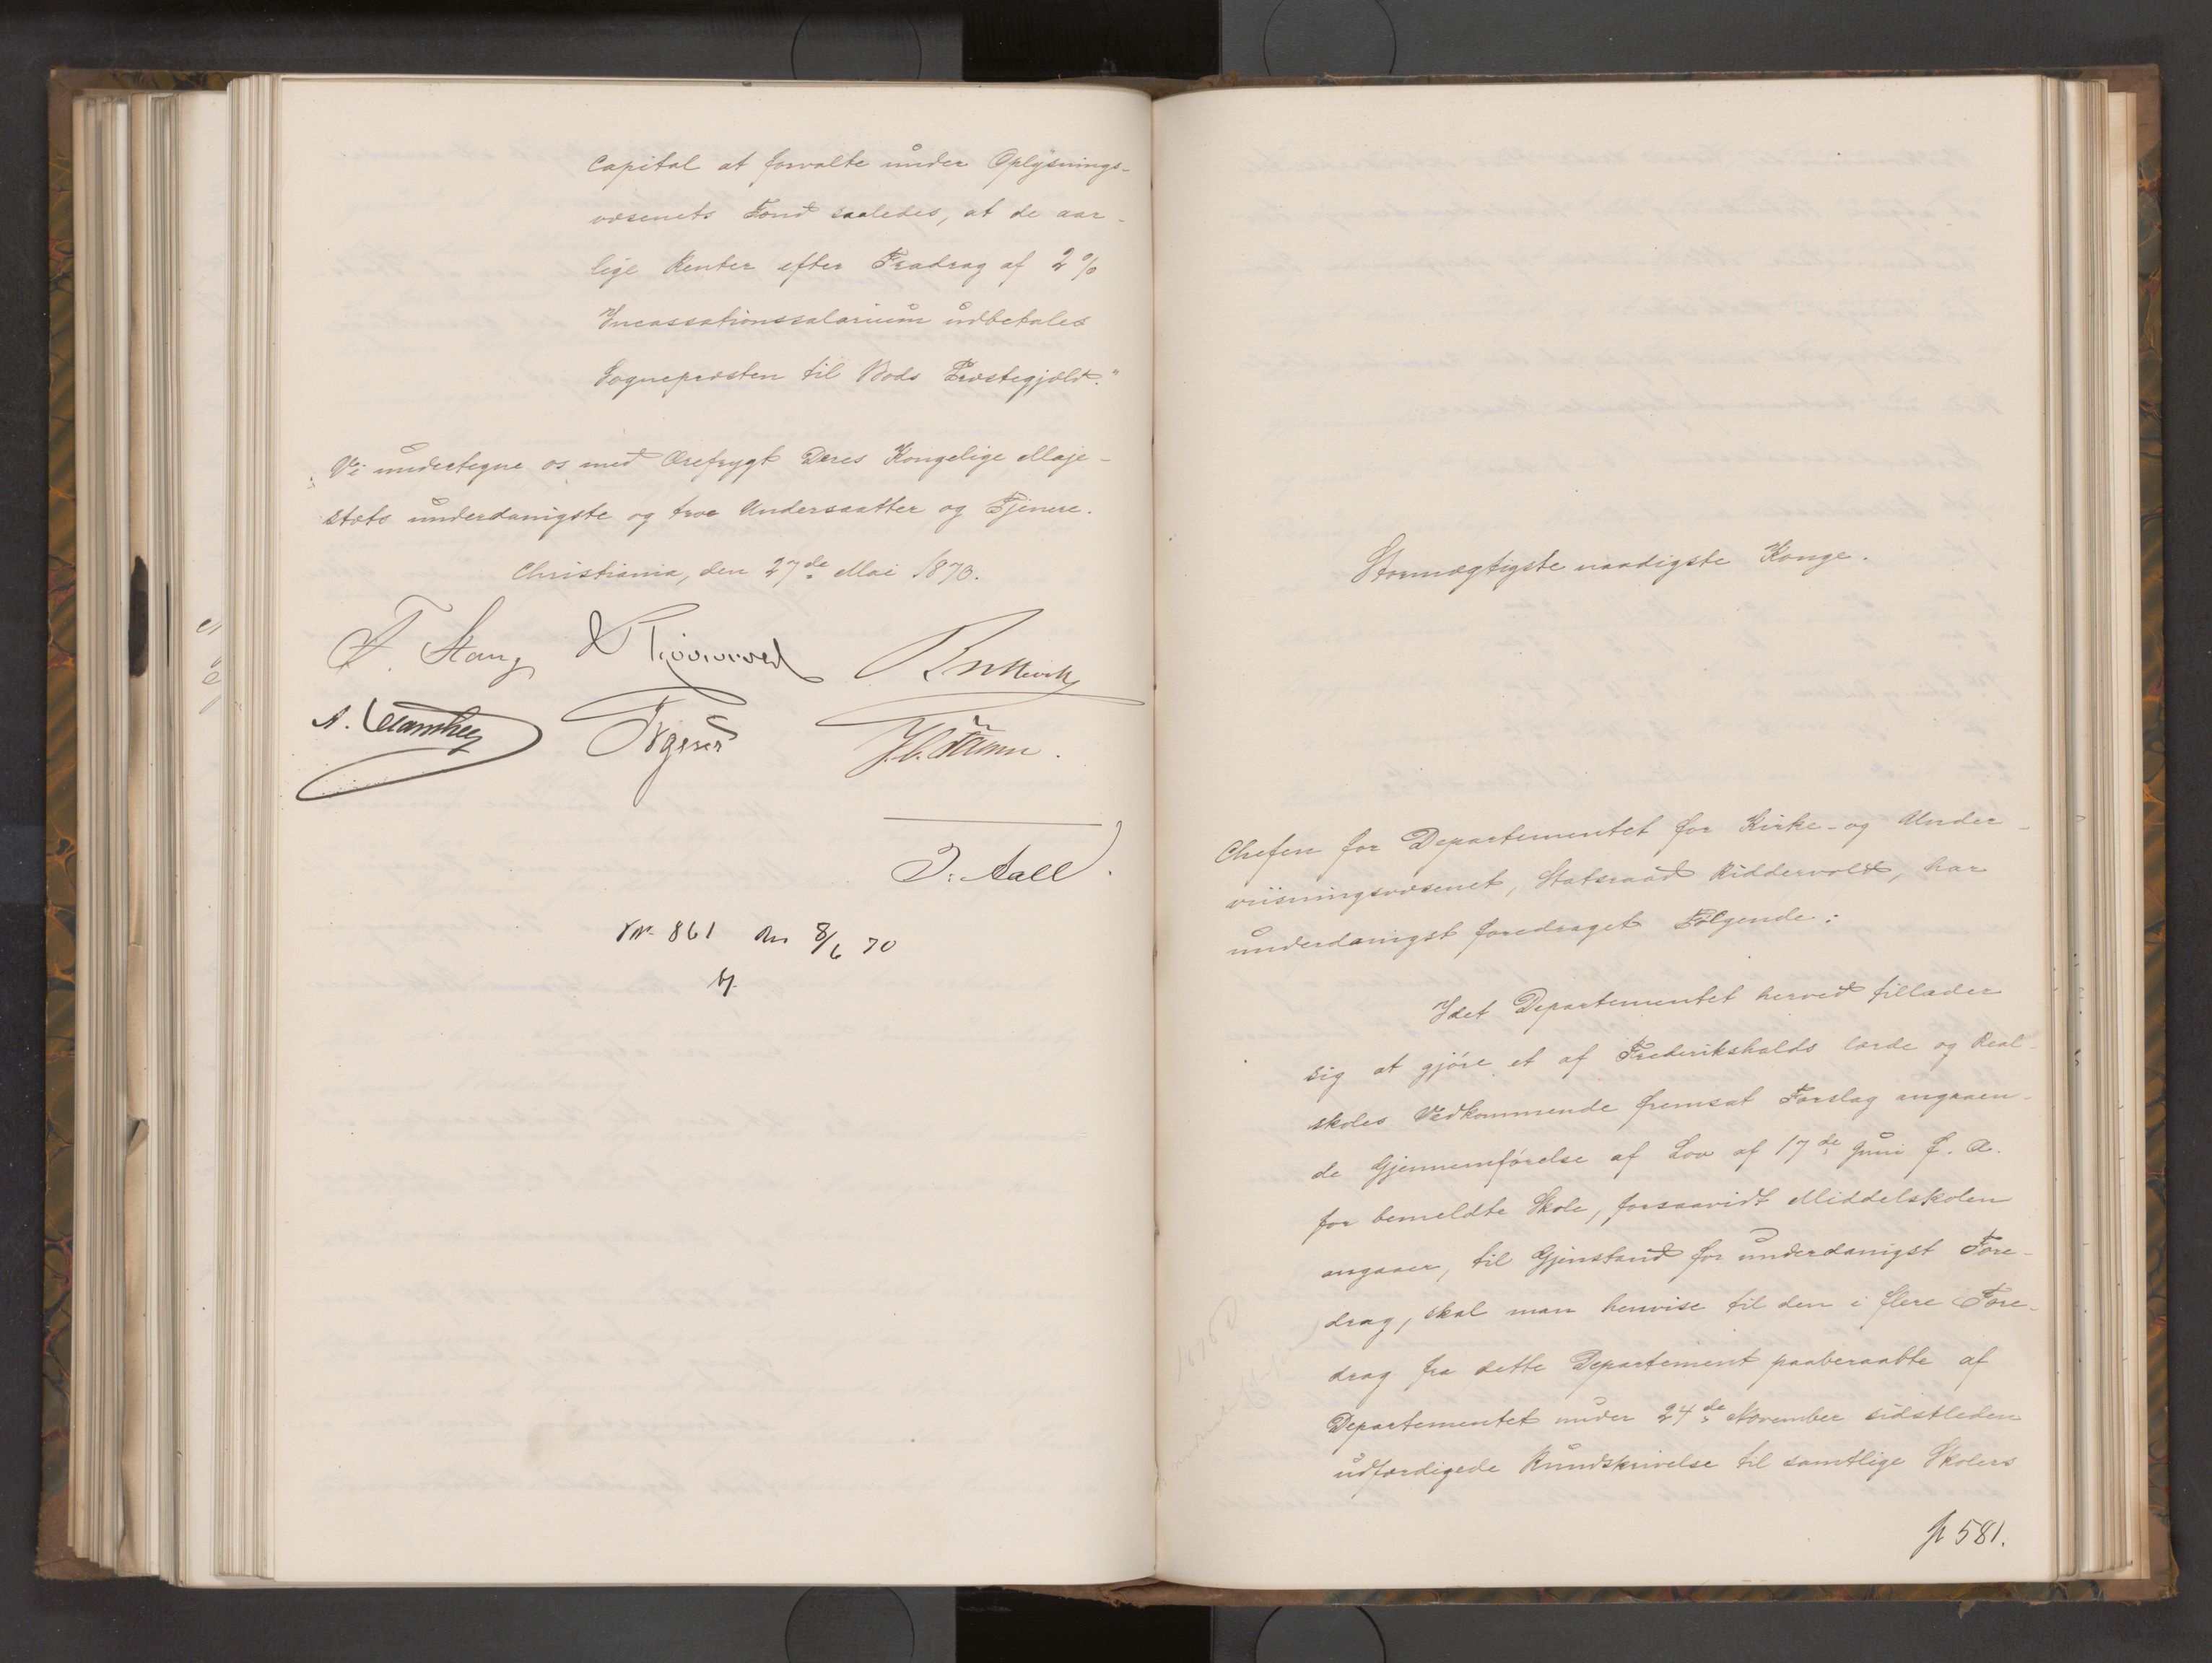 Capital at forvalte under Oplysnings-
væsenets Fond saaledes, at de aar-
lige Renter efter Fradrag af 2 %
Incassationssalarium udbetales
Sognepræsten til Bods Præstegjæld."
Vi undertegne os med Ærefrygt Deres Kongelige Maje-
stæts underdanigste og troe Undersaatter og Tjenere.
Christiania, den 27de Mai 1870.
F. Stang
J. Aall.
No 861 8/6 70
Stormægtigste naadigste Konge.
Chefen for Departementet for Kirke- og Under-
viisningsvæsenet, Statsraad Riddervold, har
underdanigst foredraget Følgende:
Idet Departementet herved tillader
sig at gjöre et af Frederikshalds lærde og Real-
skoles Vedkommende fremsat Forslag angaaen-
de Gjennemförelse af Lov af 17de Juni f. A.
for bemeldte Skole, forsaavidt Middelskolen
angaaer, til Gjenstand for underdanigst Fore-
drag, skal man henvise til den i flere Fore-
drag fra dette Departement paaberaabte af
Departementet under 24de November sidstleden
udfærdigede Rundskrivelse til samtlige Skolers
p 581.